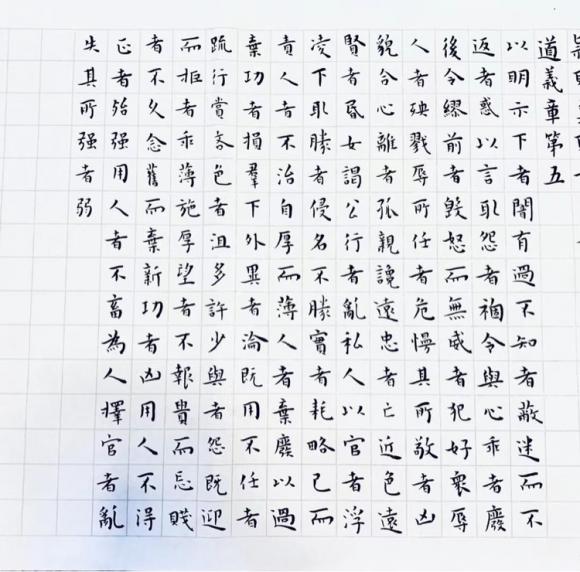 道義章第五
以明示下者闇有過不知者蔽迷而不
返者惑以言取怨者禍令與心乖者廢
後令繆前者毀怒而無威者犯好衆辱
人者殃戮辱所任者危慢其所敬者凶
貌合心離者孤親讒遠忠者亡近色遠
賢者昏女謁公行者亂私人以官者浮
凌下取勝者侵名不勝實者耗略己而
責人者不治自厚而薄人者棄廢以過
棄功者損羣下外異者淪既用不任者
疏行賞吝色者沮多許少與者怨既迎
而拒者乖薄施厚望者不報貴而忘賤
者不久念舊而棄新功者凶用人不得
正者殆强用人者不畜為人擇官者亂
失其所强者弱